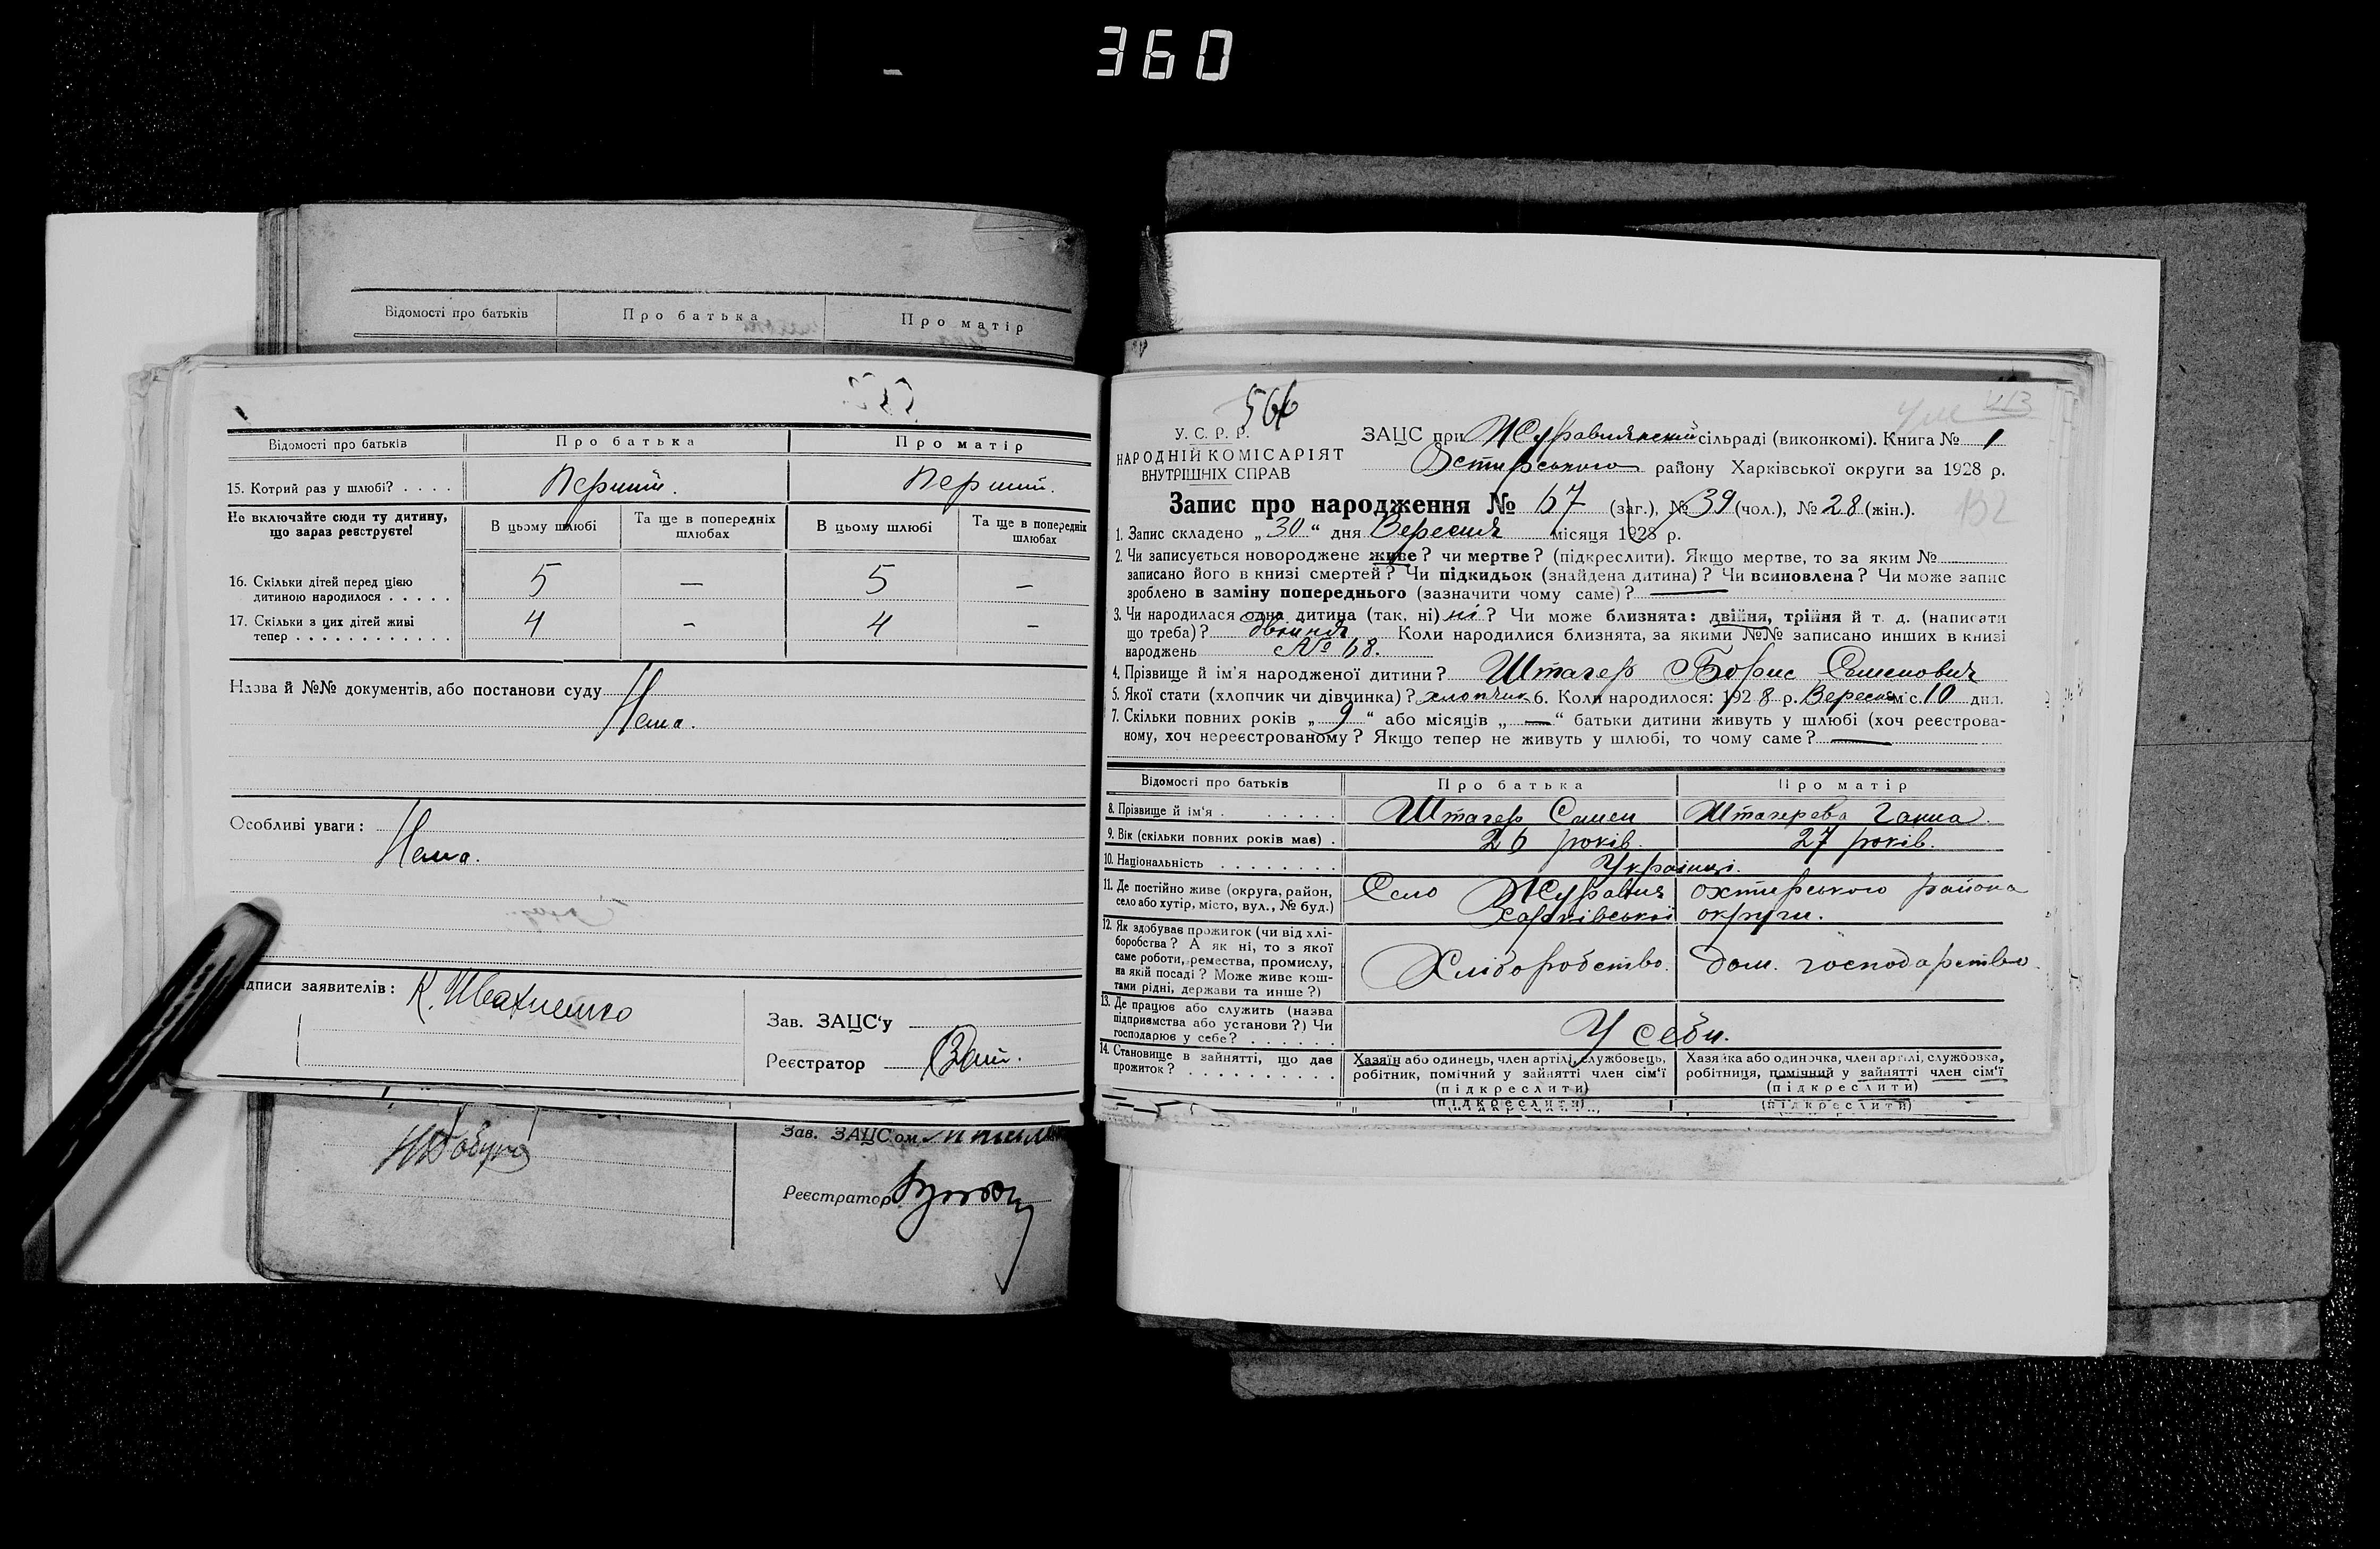 360
Відомості про батьків Про батька Про матір
Відомості про батьків Про батька Про матір
15. Котрий раз у шлюбі? . . . . Перший. Перший.
Не включайте сюди ту дитину, що зараз реєструєте!
В цьому шлюбі Та ще в попередніх шлюбах В цьому шлюбі Та ще в попередніх шлюбах
16. Скільки дітей перед цією
дитиною народилося . . . . . 5 — 5 —
17. Скільки з цих дітей живі
тепер . . . . . . . . . . . . 4 - 4 -
Назва й №№ документів, або постанови суду
Нема.
Особливі уваги:
Нема.
дписи заявителів:
Зав. ЗАЦС'у
Реєстратор
Зав. ЗАЦС'ом
Реєстратор
566
У. С. Р. Р.
НАРОДНІЙ КОМІСАРІЯТ
ВНУТРІШНІХ СПРАВ
ЗАЦС при Журавлянский сільраді (виконкомі). Книга № 1
району Харківської округи за 1928 р.
132
Запис про народження № 67 (заг.), № 39 (чол.), № 28 (жін.).
1. Запис складено „ 30 “ дня Вересня місяця 1928 р.
2. Чи записується новороджене живе? чи мертве? (підкреслити). Якщо мертве, то за яким №
записано його в книзі смертей? Чи підкидьок (знайдена дитина)? Чи всиновлена? Чи може запис
зроблено в заміну попереднього (зазначити чому саме)? —
3. Чи народилася одна дитина (так, ні) ні? Чи може близнята: двійня, трійня й т. д. (написати
що треба)? двоиня Коли народилися близнята, за якими №№ записано инших в книзі
народжень № 68.
4. Прізвище й ім'я народженої дитини? Штагер Борис Семенович
5. Якої стати (хлопчик чи дівчинка)? хлопчик 6. Коли народилося: 1928 р. Вересня м с. 10 дня.
7. Скільки повних років „ 9 “ або місяців „ — “ батьки дитини живуть у шлюбі (хоч реєстрова-
ному, хоч нереєстрованому? Якщо тепер не живуть у шлюбі, то чому саме? —
Відомості про батьків Про батька Про матір
8. Прізвище й ім'я . . . . . . Штагер Семен Штагерева Ганна.
9. Вік (скільки повних років має) . 26 років. 27 років.
10. Національність . . . . . . . Українці.
11. Де постійно живе (округа, район,
село або хутір, місто, вул., № буд.)
Село Журавня охтирського района
харківської округи.
12. Як здобуває прожиток (чи від хлі-
боробства? А як ні, то з якої
саме роботи, ремества, промислу,
на якій посаді? Може живе кош-
тами рідні, держави та инше?)
Хліборобство. Дом. господарство.
13. Де працює або служить (назва
підприємства або установи?) Чи
господарює у себе? . . . . . .
У себи.
14. Становище в зайнятті, що дає
прожиток? . . . . . . . . . .
Хазяїн або одинець, член артілі, службовець,
робітник, помічний у зайнятті член сім'ї
(підкреслити)
Хазяйка або одиночка, член артілі, службовка,
робітниця, помічний у зайнятті член сім'ї
(підкреслити)
(підкреслити) (підкреслити)